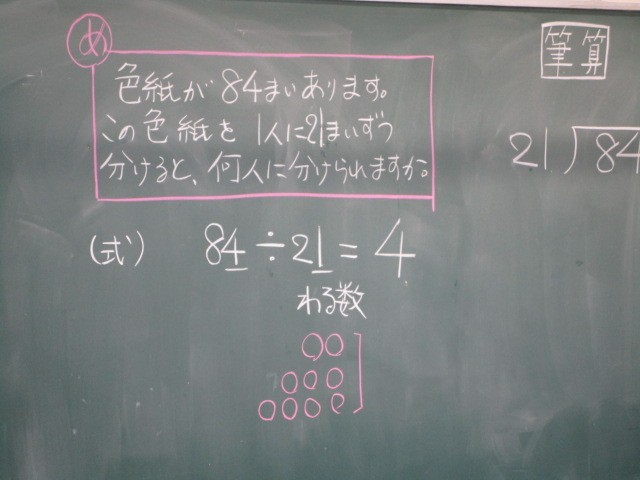 め
色紙が84まいあります。
この色紙を1人に21まいずつ
分けると、何人に分けられますか。
(式) 84÷21=4
わる数
○○
○○○
○○○○
筆算
21)84